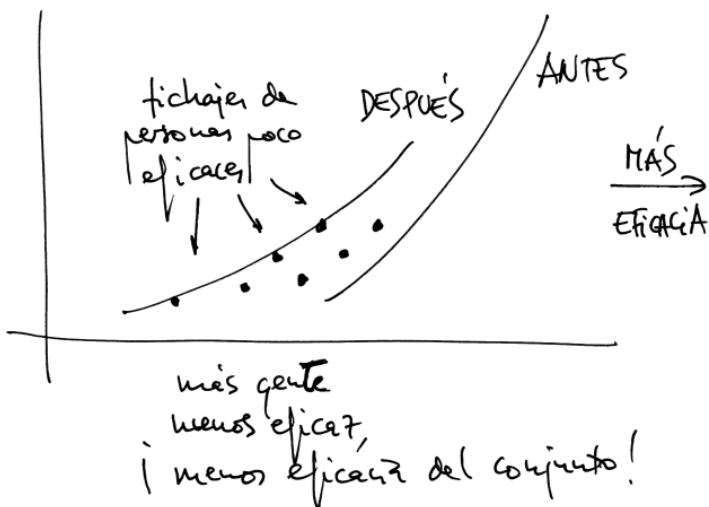 fichajes de
personas poco
eficaces
DESPUÉS
ANTES
MÁS
EFICACIA
más gente
menos eficaz,
¡menos eficacia del conjunto!